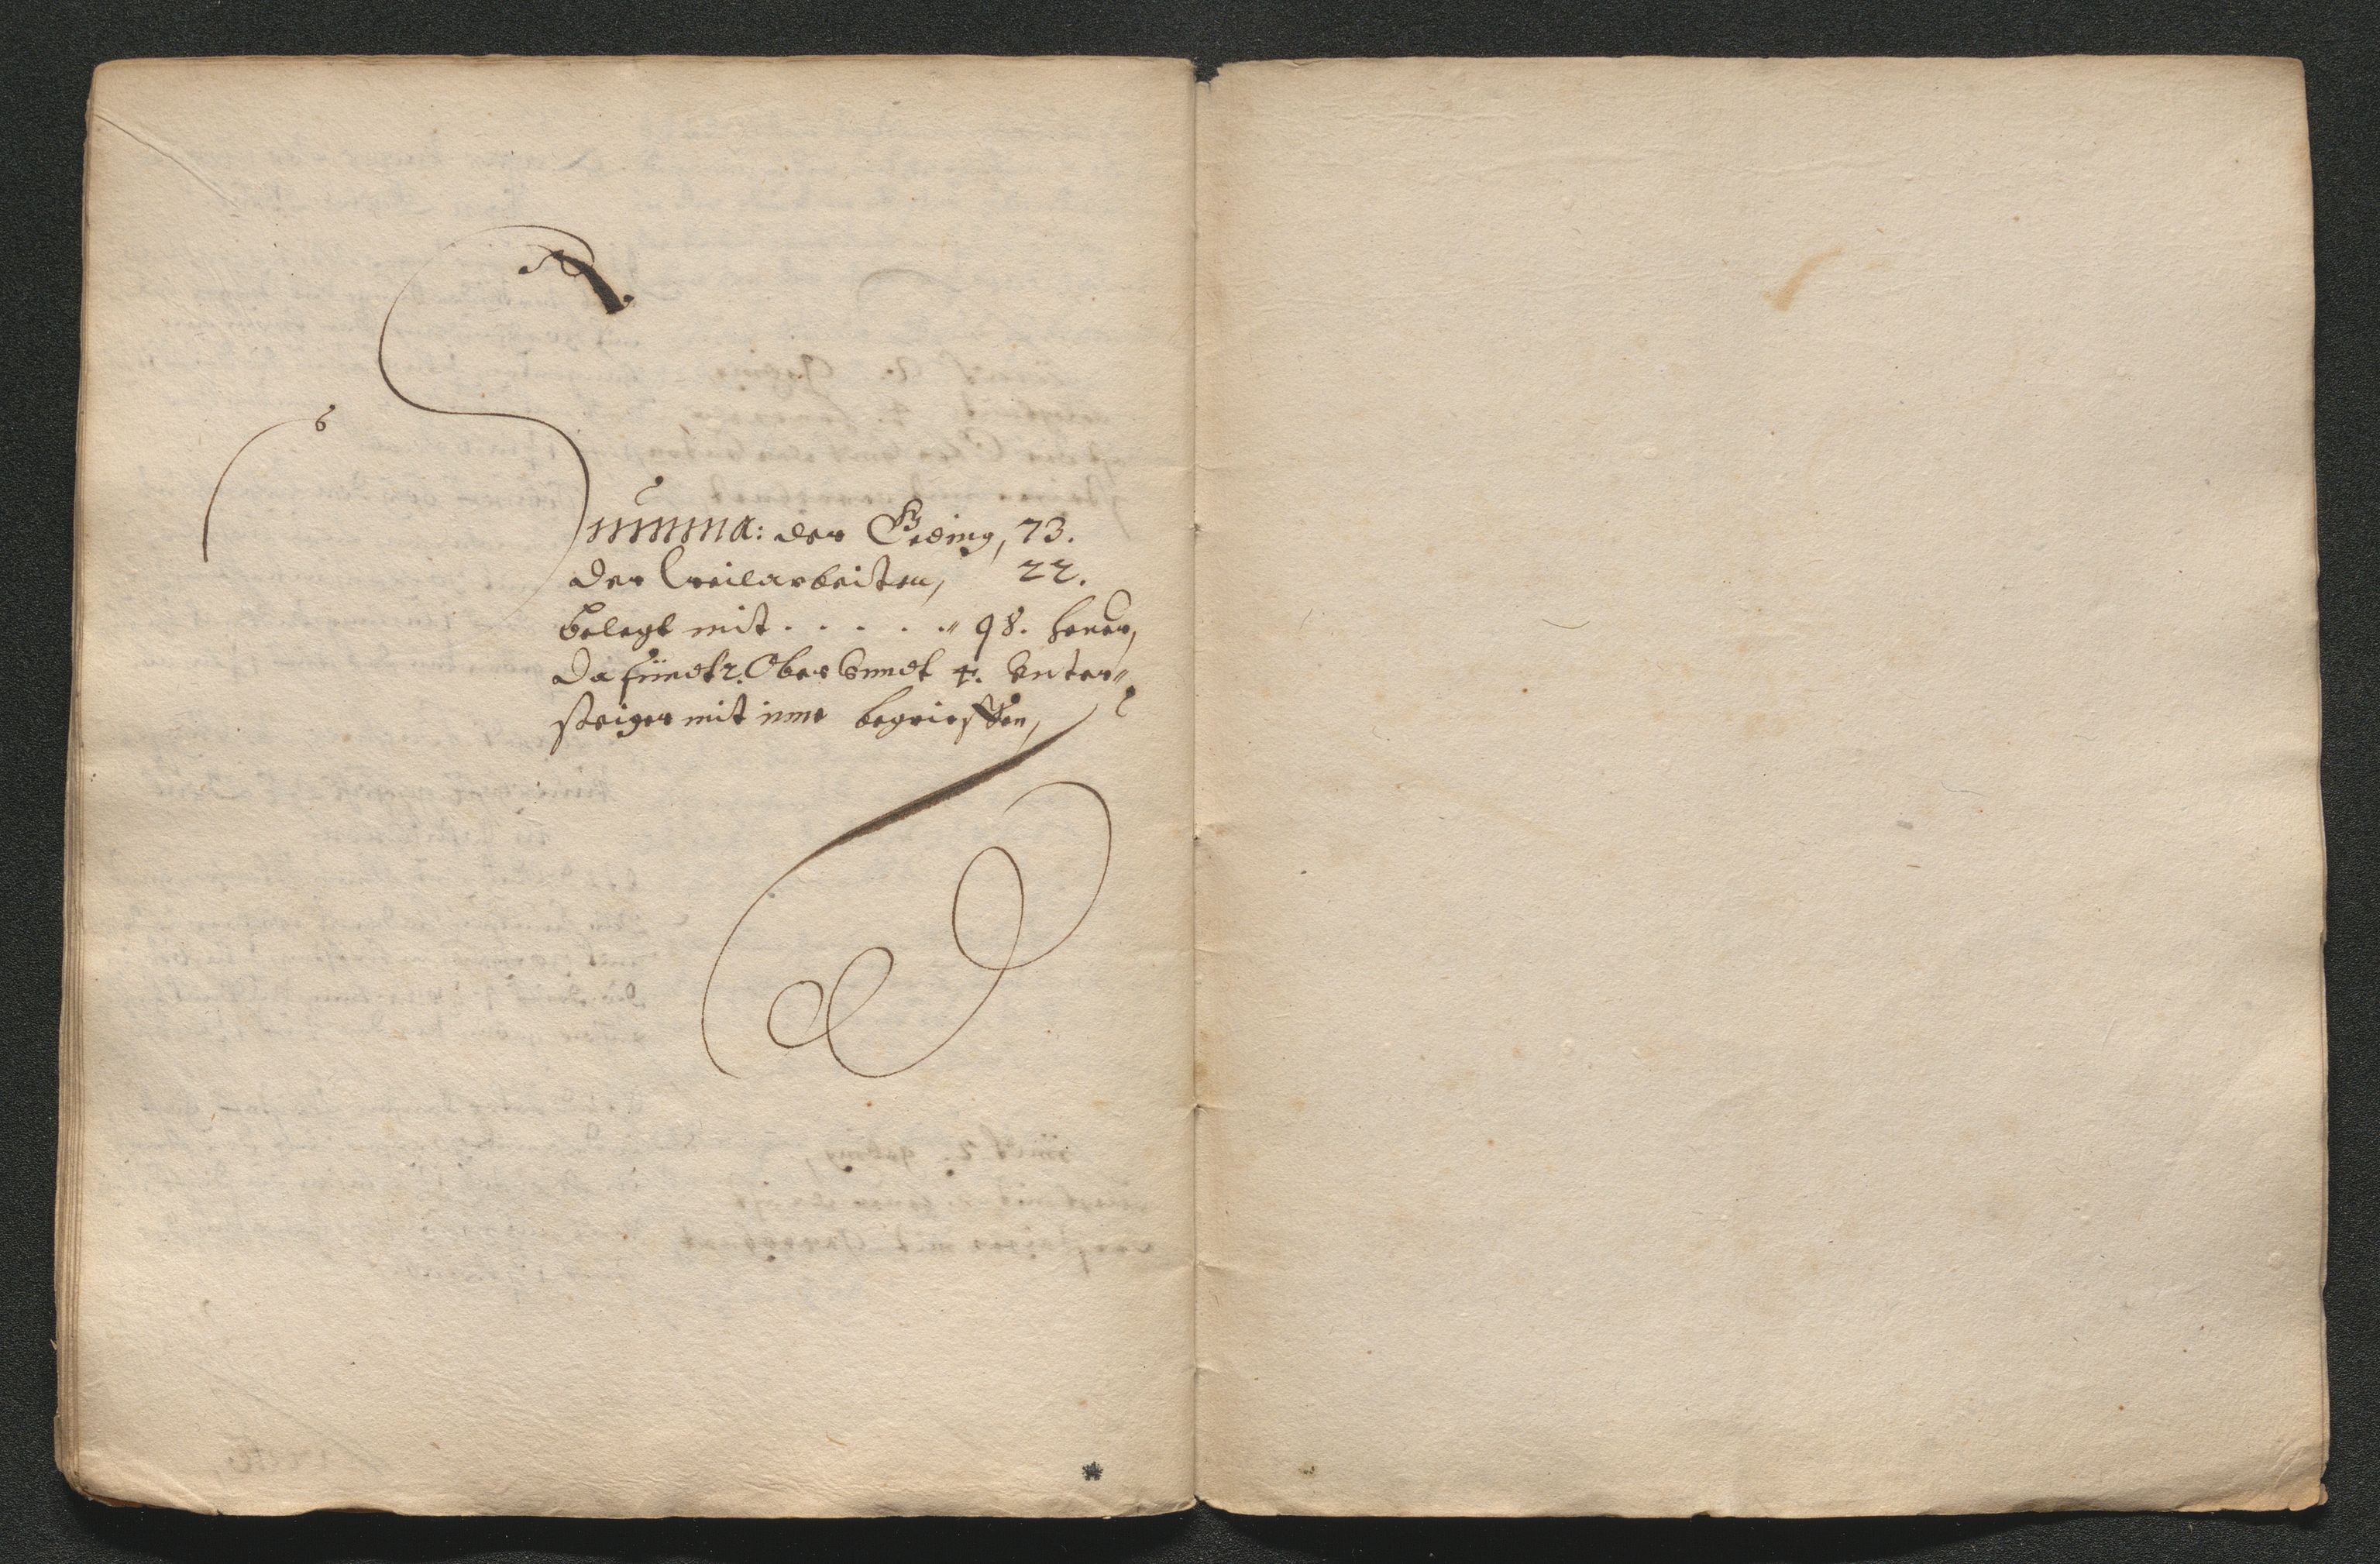 Summa: der Geding, 73.
der Weilarbeiten, 22.
belegt mit . . . . .„ 98. heuer,
da sündt 2. Ober vundt 4. vnter„
steiger mit inne begrieffen,